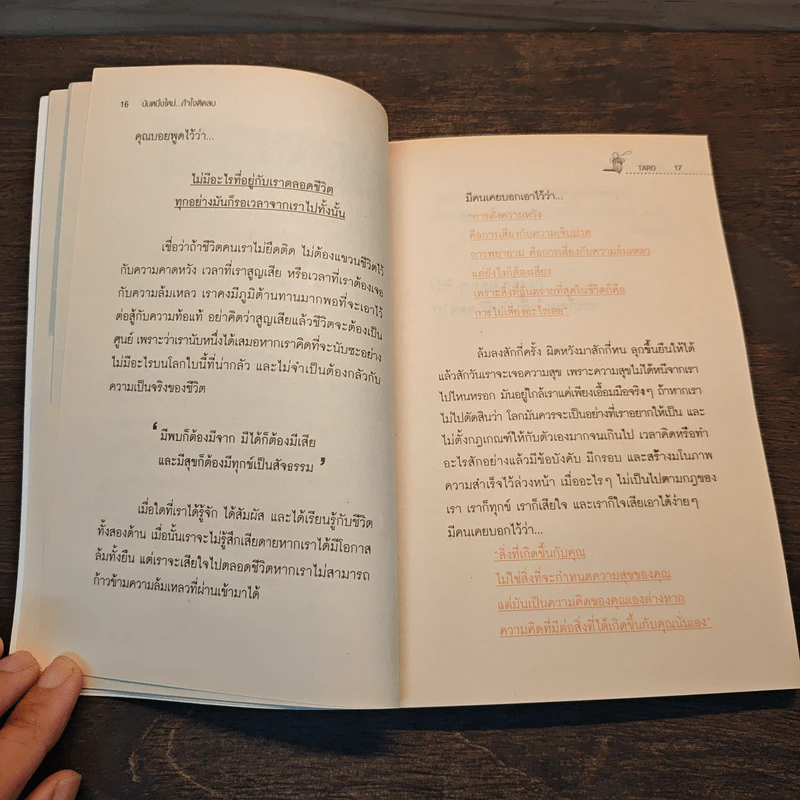 16 นับหนึ่งใหม่...ถ้าใจติดลบ
คุณบอยพูดไว้ว่า...
ไม่มีอะไรที่อยู่กับเราตลอดชีวิต
ทุกอย่างมันก็รอเวลาจากเราไปทั้งนั้น
เชื่อว่าถ้าชีวิตคนเราไม่ยึดติด ไม่ต้องแขวนชีวิตไว้
กับความคาดหวัง เวลาที่เราสูญเสีย หรือเวลาที่เราต้องเจอ
กับความล้มเหลว เราคงมีภูมิต้านทานมากพอที่จะเอาไว้
ต่อสู้กับความท้อแท้ อย่าคิดว่าสูญเสียแล้วชีวิตจะต้องเป็น
ศูนย์ เพราะว่าเรานับหนึ่งได้เสมอหากเราคิดที่จะนับซะอย่าง
ไม่มีอะไรบนโลกใบนี้ที่น่ากลัว และไม่จำเป็นต้องกลัวกับ
ความเป็นจริงของชีวิต
‘ มีพบก็ต้องมีจาก มีได้ก็ต้องมีเสีย
และมีสุขก็ต้องมีทุกข์เป็นสัจธรรม ’
เมื่อใดที่เราได้รู้จัก ได้สัมผัส และได้เรียนรู้กับชีวิต
ทั้งสองด้าน เมื่อนั้นเราจะไม่รู้สึกเสียดายหากเราได้มีโอกาส
ล้มทั้งยืน แต่เราจะเสียใจไปตลอดชีวิตหากเราไม่สามารถ
ก้าวข้ามความล้มเหลวที่ผ่านเข้ามาได้
TARO 17
มีคนเคยบอกเอาไว้ว่า...
"การตั้งความหวัง
คือการเสี่ยงกับความเจ็บปวด
การพยายาม คือการเสี่ยงกับความล้มเหลว
แต่ยังไงก็ต้องเสี่ยง
เพราะสิ่งที่อันตรายที่สุดในชีวิตก็คือ
การไม่เสี่ยงอะไรเลย"
ล้มลงสักกี่ครั้ง ผิดหวังมาสักกี่หน ลุกขึ้นยืนให้ได้
แล้วสักวันเราจะเจอความสุข เพราะความสุขไม่ได้หนีจากเรา
ไปไหนหรอก มันอยู่ใกล้เราแค่เพียงเอื้อมมือจริงๆ ถ้าหากเรา
ไม่ไปตัดสินว่า โลกมันควรจะเป็นอย่างที่เราอยากให้เป็น และ
ไม่ตั้งกฎเกณฑ์ให้กับตัวเองมากจนเกินไป เวลาคิดหรือทำ
อะไรสักอย่างแล้วมีข้อบังคับ มีกรอบ และสร้างมโนภาพ
ความสำเร็จไว้ล่วงหน้า เมื่ออะไรๆ ไม่เป็นไปตามกฎของ
เรา เราก็ทุกข์ เราก็เสียใจ และเราก็ใจเสียเอาได้ง่ายๆ
มีคนเคยบอกไว้ว่า...
"สิ่งที่เกิดขึ้นกับคุณ
ไม่ใช่สิ่งที่จะกำหนดความสุขของคุณ
แต่มันเป็นความคิดของคุณเองต่างหาก
ความคิดที่มีต่อสิ่งที่ได้เกิดขึ้นกับคุณนั่นเอง"